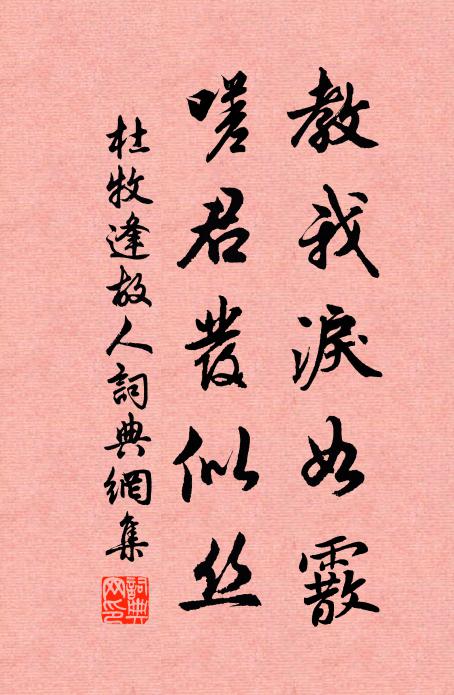 教我淚如霰
嗟君發似絲
杜牧逢故人詞典網集
詞典網印